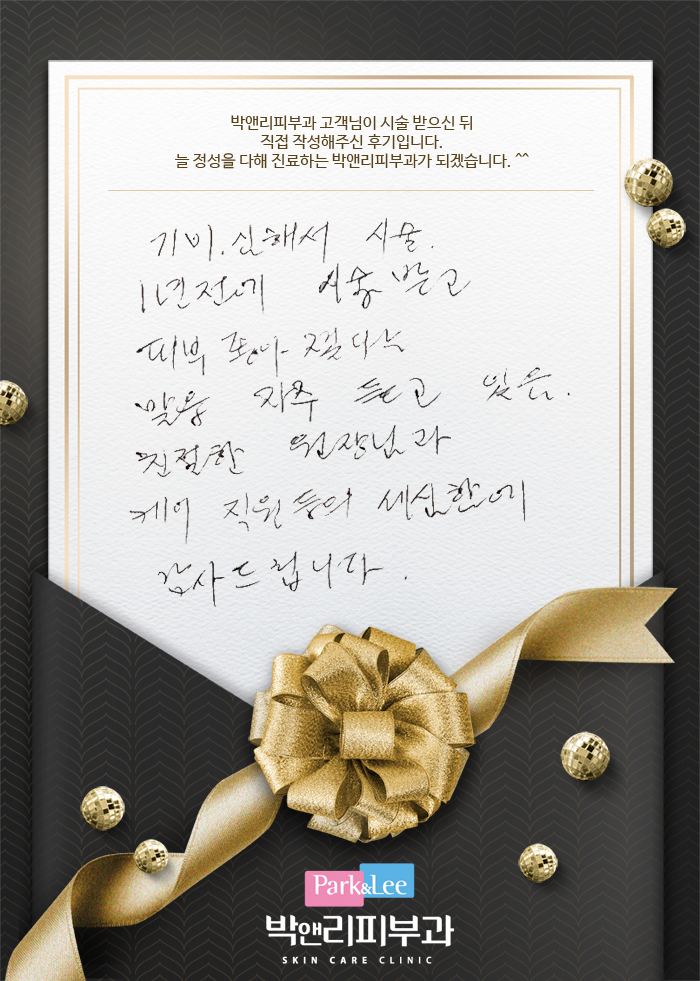 박앤리피부과 고객님이 시술 받으신 뒤
직접 작성해주신 후기입니다.
늘 정성을 다해 진료하는 박앤리피부과가 되겠습니다. ^^
기미. 심해서 시술.
1년전에 시술 받고
피부 좋아 졌다는
말을 자주 듣고 있음.
친절한 원장님과
케어 직원들의 세심함에
감사드립니다.
Park&Lee
박앤리피부과
SKIN CARE CLINIC